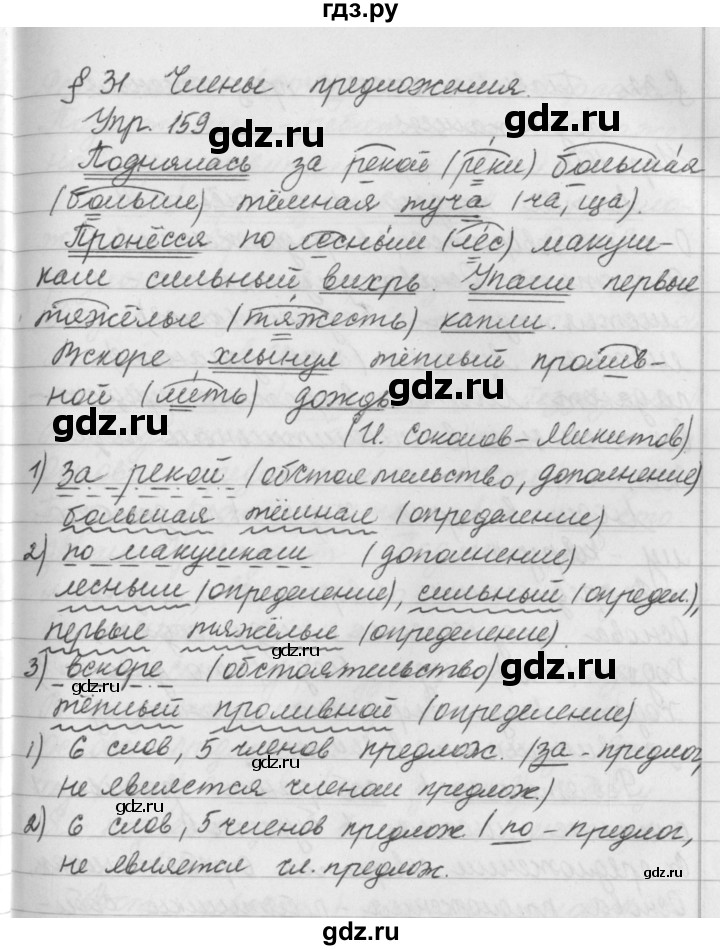 гдз.ру
§ 31 Члены предложения.
Упр. 159
gdz.ru gdz.ru
Поднялась за рекой (реки) большая
(больше) тёмная туча (ча, ща).
gdz.ru gdz.ru
Пронёсся по лесным (лес) макуш-
кам сильный вихрь. Упали первые
тяжёлые (тяжесть) капли.
gdz.ru gdz.ru
Вскоре хлынул тёплый пролив-
ной (лить) дождь
gdz.ru gdz.ru
(И. Соколов-Микитов)
1) за рекой (обстоятельство, дополнение)
большая тёмная (определение)
gdz.ru gdz.ru
2) по макушкам (дополнение)
лесным (определение), сильный (определ.),
gdz.ru gdz.ru
первые тяжёлые (определение).
3) вскоре (обстоятельство)
gdz.ru gdz.ru
тёплый проливной (определение)
1) 6 слов, 5 членов предлож. (за - предлог,
gdz.ru
не является членом предлож.)
gdz.ru
2) 6 слов, 5 членов предлож. (по - предлог,
не является чл. предлож.
gdz.ru
gdz.ru